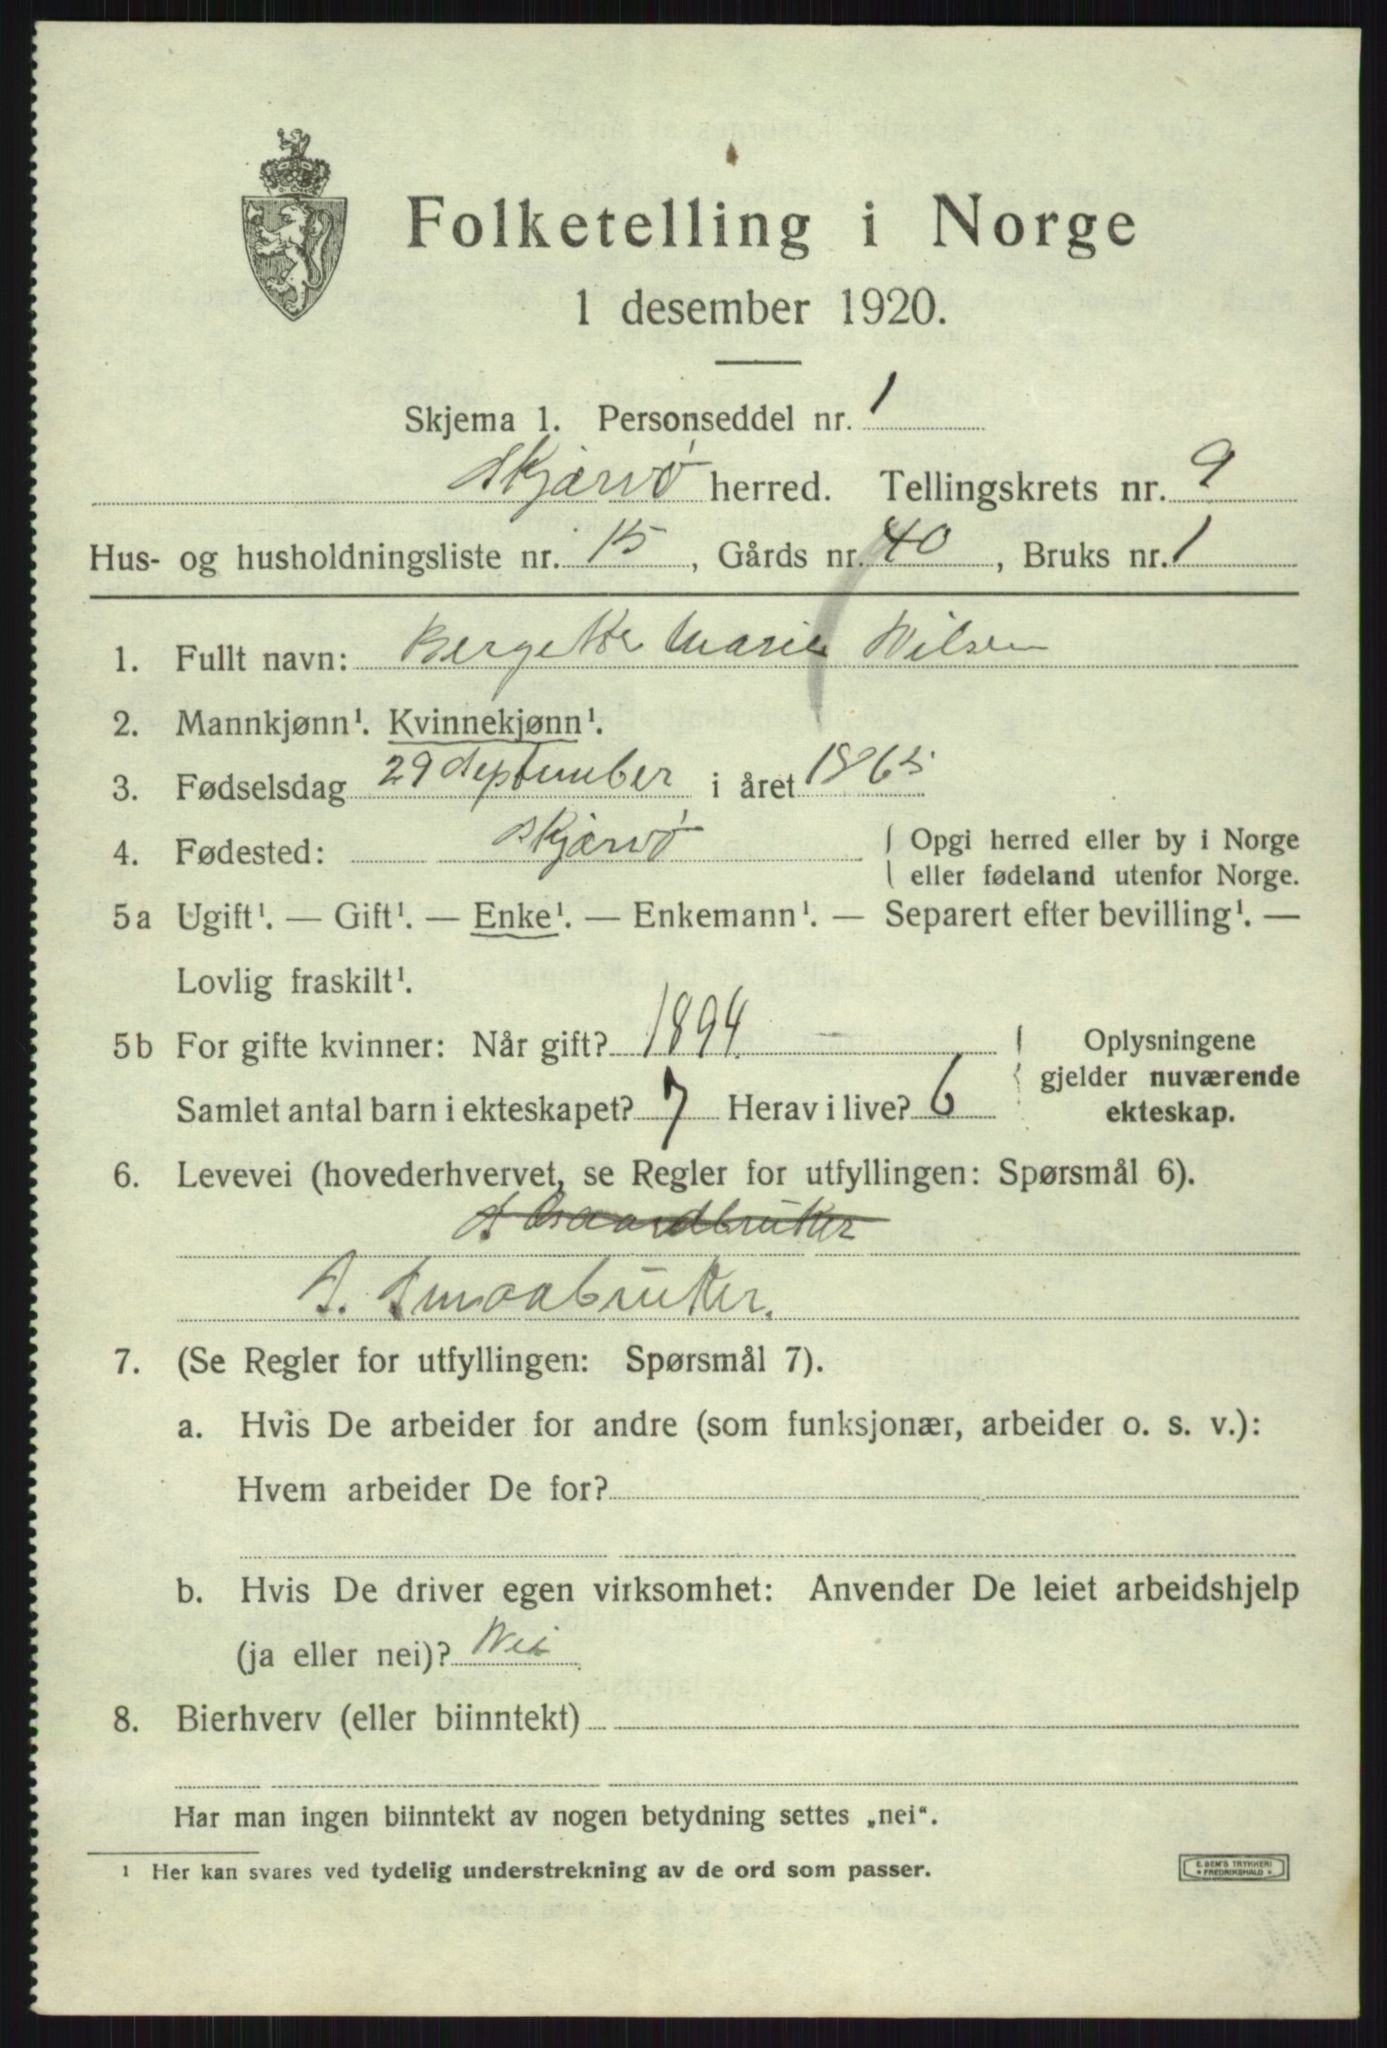 Folketelling i Norge
1 desember 1920.
Skjema 1. Personseddel nr. 1
Skjærvø herred. Tellingskrets nr. 9
Hus- og husholdningsliste nr. 15, Gårds nr. 40, Bruks nr. 1
1. Fullt navn: Bergette Marie Nilsen
2. Mannkjønn¹. Kvinnekjønn¹.
3. Fødselsdag 29 September i året 1865
4. Fødested: Skjærvø { Opgi herred eller by i Norge
eller fødeland utenfor Norge.
5a Ugift¹. — Gift¹. — Enke¹. — Enkemann¹. — Separert efter bevilling¹. —
Lovlig fraskilt¹.
5b For gifte kvinner: Når gift? 1894. { Oplysningene
gjelder nuværende
Samlet antal barn i ekteskapet? 7 Herav i live? 6 ekteskap.
6. Levevei (hovederhvervet, se Regler for utfyllingen: Spørsmål 6).
S. Smaabruker.
7. (Se Regler for utfyllingen: Spørsmål 7).
a. Hvis De arbeider for andre (som funksjonær, arbeider o. s. v.):
Hvem arbeider De for?
b. Hvis De driver egen virksomhet: Anvender De leiet arbeidshjelp
(ja eller nei)? Nei
8. Bierhverv (eller biinntekt)
Har man ingen biinntekt av nogen betydning settes „nei“.
¹ Her kan svares ved tydelig understrekning av de ord som passer.
E. SEM'S TRYKKERI
* FREDRIKSHALD *